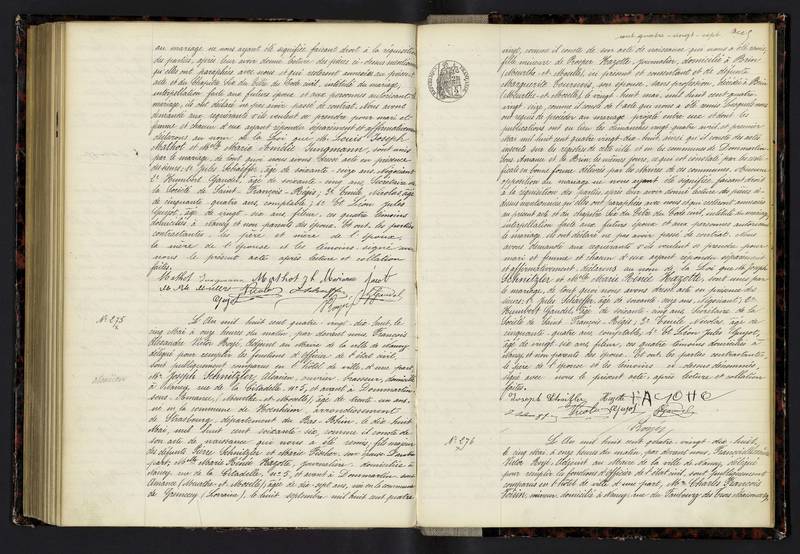 au mariage ne nous ayant été signifiée faisant droit à la réquisition
des parties, après leur avoir donné lecture des pièces ci-dessus mentionnées
qu'elles ont paraphées avec nous et qui resteront annexées au présent
acte et du chapitre Six du Titre du Code civil, intitulé du mariage,
interpellation faite aux futurs époux et aux personnes autorisant le
mariage, ils ont déclaré ne pas avoir passé de contrat. Nous avons
demandé aux requérants s'ils veulent se prendre pour mari et
femme et chacun d'eux ayant répondu séparément et affirmativement
déclarons au nom de la Loi que Louis Joseph
Mathot et Mlle Marie Amélie Jungmann, sont unis
par le mariage, de tout quoi nous avons dressé acte en présence
des sieurs: 1° Jules Schaeffer, âgé de soixante-seize ans, Négociant
2° Humbert Gandel, âgé de soixante-cinq ans, Secrétaire de
la Société de Saint-François-Régis; 3° Emile Nicolas âgé
de cinquante quatre ans, comptable; 4° et Léon Jules
Guyot, âgé de vingt-six ans fileur, ces quatre témoins
domiciliés à Nancy et non parents des époux. Et ont, les parties
contractantes, les père et mère de l'époux,
la mère de l'épouse et les témoins, signé avec
nous le présent acte après lecture et collation
faites.
Mathot Jungmann Mathot
Nicolas
Guyot Royé
N° 275
L'An mil huit cent quatre-vingt-dix-huit, le
cinq Mai à onze heures du matin, par devant nous François
Alexandre Victor Royé, Adjoint au Maire de la ville de Nancy
délégué pour remplir les fonctions d'Officier de l'état civil,
sont publiquement comparus en l'Hôtel de ville, d'une part,
Mr Joseph Schnitzler, Alsacien, ouvrier brasseur, domicilié
à Nancy, rue de la Citadelle, n° 5, et avant à Dommartin-
sous-Amance, (Meurthe-et-Moselle), âgé de trente-un ans,
né en la commune de Hœnheim, arrondissement
de Strasbourg, département du Bas-Rhin, le dix huit
Mai, mil huit cent soixante-six, comme il conste de
son acte de naissance qui nous a été remis, fils majeur
des défunts Pierre Schnitzler et Marie Fischer, son épouse. D'autre
part, Mlle Marie Renée Hazotte, journalière, domiciliée à
Nancy, rue de la Citadelle, n° 5, et avant à Dommartin-sous-
Amance (Meurthe-et-Moselle), âgée de dix-sept ans, née en la commune
de Grémecey (Lorraine), le huit septembre mil huit cent quatre
cent quatre-vingt-sept
vingt, comme il conste de son acte de naissance qui nous a été remis,
fille mineure de Prosper Hazotte, journalier, domicilié à Brin
(Meurthe-et-Moselle), ici présent et consentant et de défunte
Marguerite son épouse, sans profession, décédée à Brin
(Meurthe-et-Moselle), le vingt huit mai, mil huit cent quatre-
vingt-onze comme il conste de l'acte qui nous a été remis. Lesquels nous
ont requis de procéder au mariage projeté entre eux et dont les
publications ont eu lieu les dimanches vingt quatre avril et premier
mai mil huit cent quatre-vingt-dix-huit, ainsi qu'il conste des actes
inscrits sur les registres de cette ville et en les communes de Dommartin-
sous-Amance et de Brin, les mêmes jours, ce qui est constaté par les certi-
ficats en bonne forme délivrés par les Maires de ces communes. Aucune
opposition au mariage ne nous ayant été signifiée, faisant droit
à la réquisition des parties, après leur avoir donné lecture des pièces ci-
dessus mentionnées qu'elles ont paraphées avec nous et qui resteront annexées
au présent acte et du chapitre Six du Titre du Code civil, intitulé du mariage,
interpellation faite aux futurs époux et aux personnes autorisant
le mariage, ils ont déclaré ne pas avoir passé de contrat. Nous
avons demandé aux requérants s'ils veulent se prendre pour
mari et femme et chacun d'eux ayant répondu séparément
et affirmativement, déclarons au nom de la Loi que Joseph
Schnitzler, et Mlle Marie Renée Hazotte, sont unis par
le mariage, de tout quoi nous avons dressé acte en présence
des sieurs: 1° Jules Schaeffer, âgé de soixante-seize ans, Négociant; 2°
Humbert Gandel, âgé de soixante-cinq ans, Secrétaire de la
Société de Saint-François-Régis; 3° Emile Nicolas, âgé de
cinquante quatre ans, comptable; 4° et Léon Jules Guyot,
âgé de vingt-six ans fileur, ces quatre témoins domiciliés à
Nancy et non parents des époux. Et ont les parties contractantes,
le père de l'épouse et les témoins ci-dessus dénommés,
signé avec nous le présent acte, après lecture et collation
faites.
Joseph Schnitzler Hazotte HAZOTTE
Nicolas Guyot Gandel
Royé
N° 276
L'An mil huit cent quatre-vingt-dix-huit,
le cinq Mai, à onze heures du matin, par devant nous, François Alexandre
Victor Royé, Adjoint au Maire de la ville de Nancy, délégué
pour remplir les fonctions d'Officier de l'état civil, sont publiquement
comparus en l'Hôtel de ville d'une part, Mr Charles François
mineur, domicilié à Nancy, rue du Faubourg des Trois Maisons